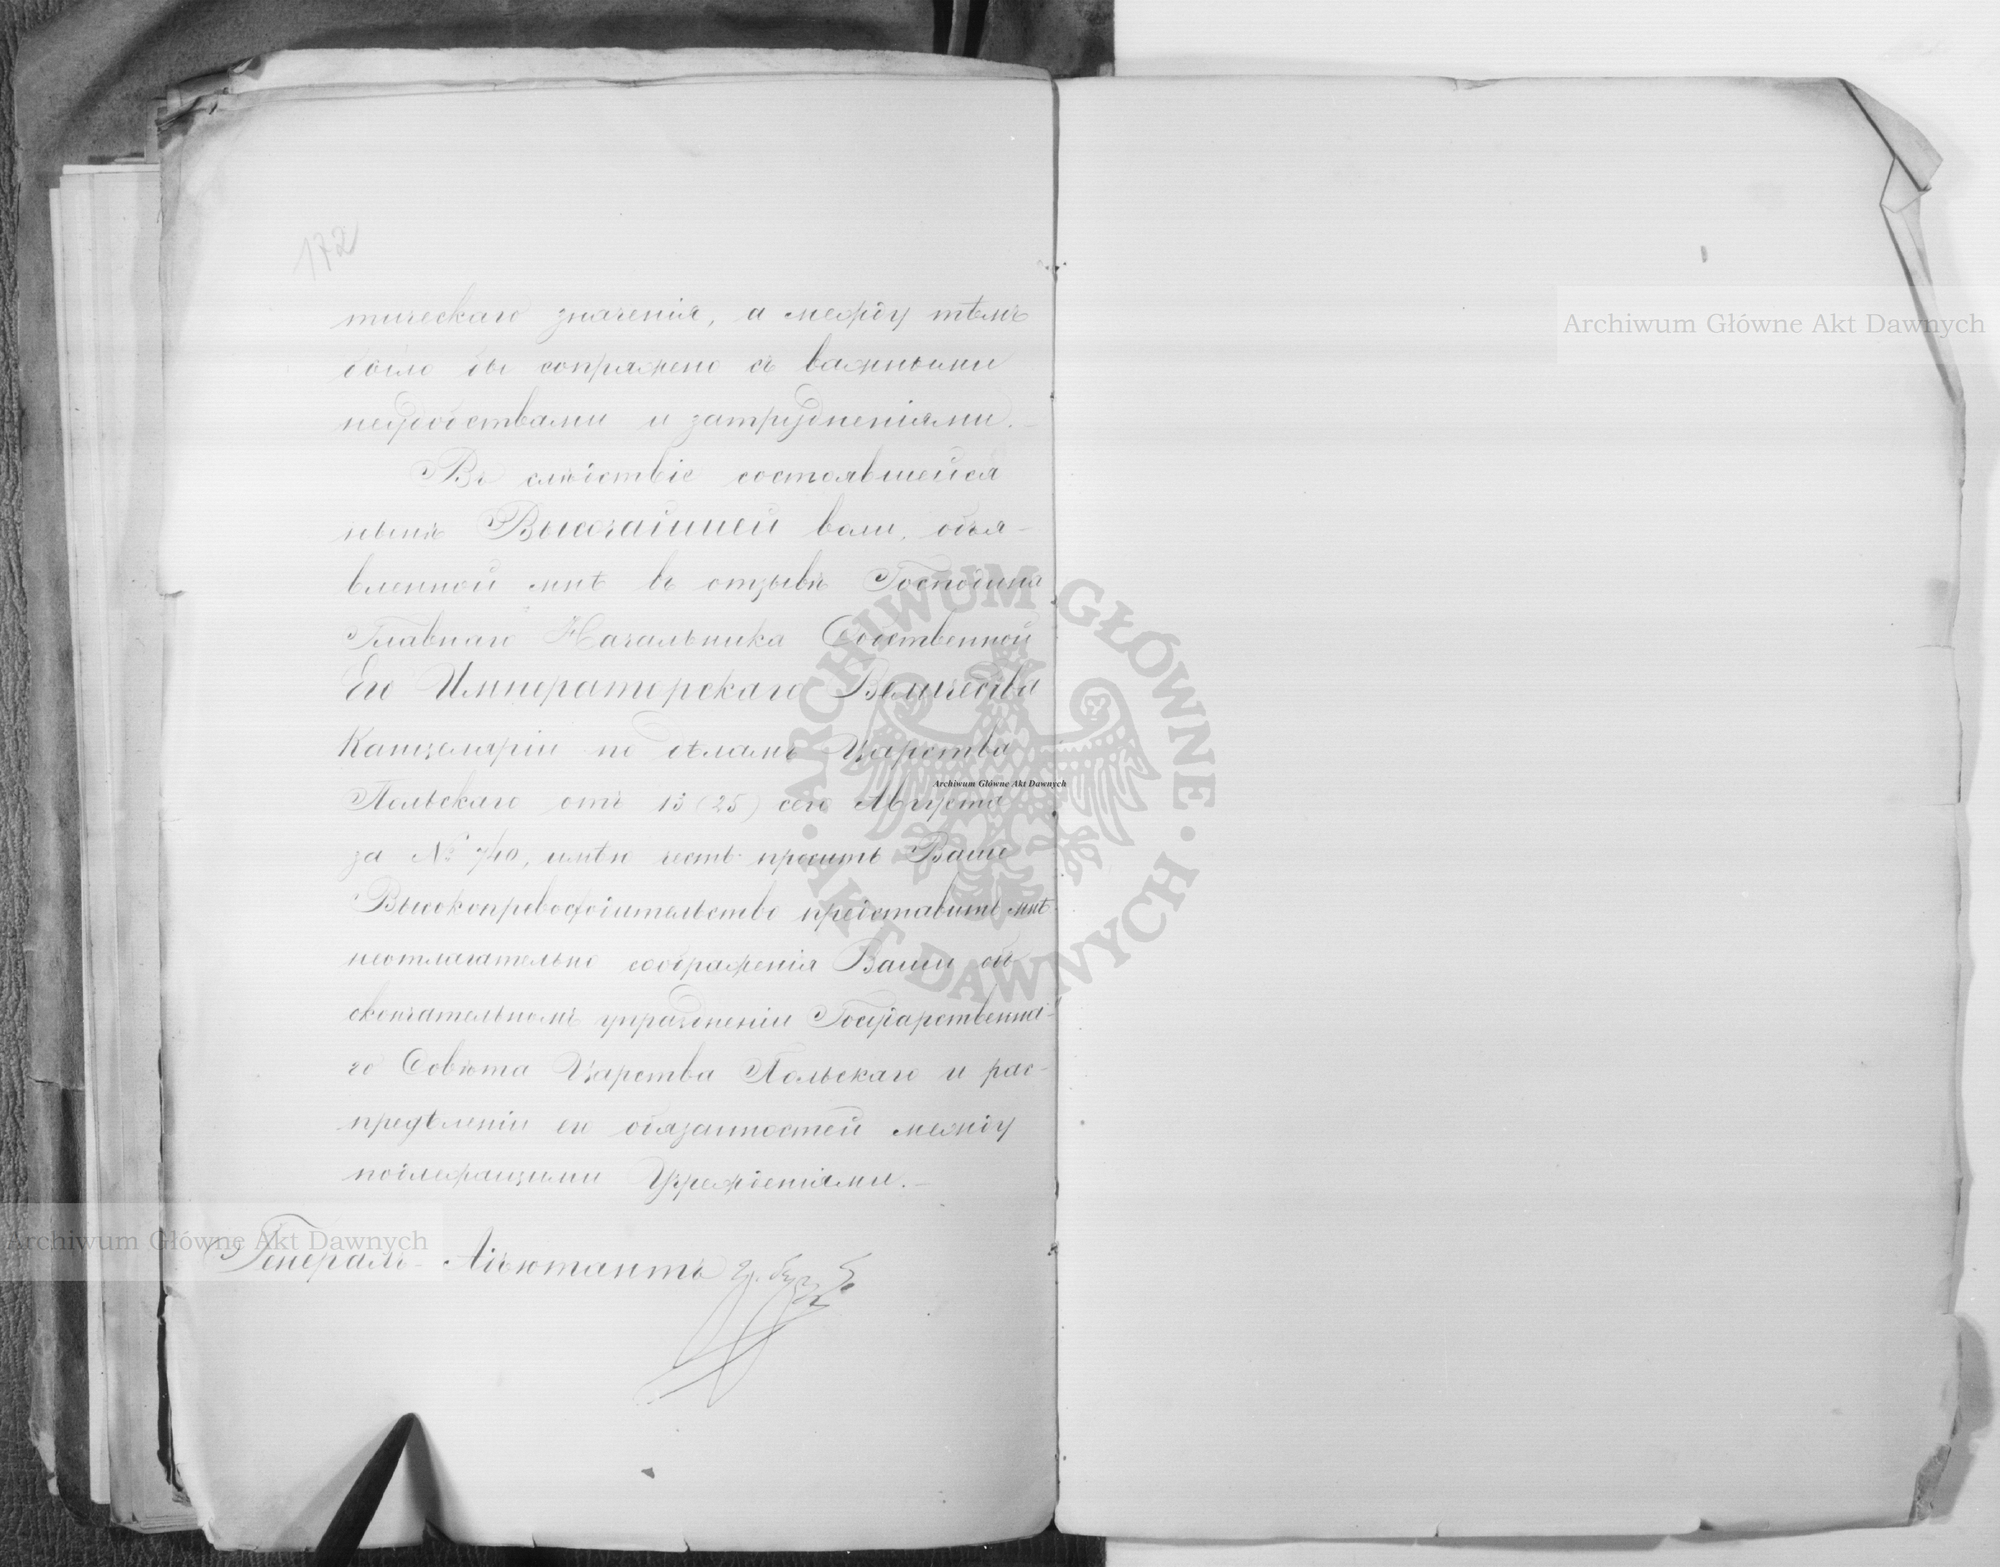 172
тическаго значенія, а между тѣмъ
было бы сопряжено съ важными
неудобствами и затрудненіями.—
Въ слѣдствіе состоявшейся
нынѣ Высочайшей воли, объя-
вленной мнѣ въ отзывѣ Господина
Главнаго Начальника Собственной
Его Императорскаго Величества
Канцеляріи по дѣламъ Царства
Польскаго отъ 13 (25) сего Августа
за № 740, имѣю честь просить Ваше
Высокопревосходительство представить мнѣ
неотлагательно соображенія Ваши объ
окончательномъ упраздненіи Государственна-
го Совѣта Царства Польскаго и рас-
предѣленіи его обязанностей между
подлежащими Учрежденіями.—
Генералъ-Адъютантъ гр. Бергъ
Archiwum Główne Akt Dawnych
Archiwum Główne Akt Dawnych
Archiwum Główne Akt Dawnych
ARCHIWUM GŁÓWNE · AKT DAWNYCH ·